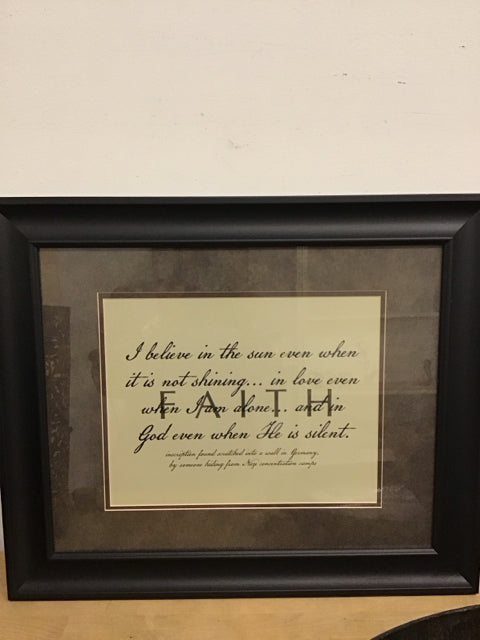 I believe in the sun even when
it is not shining... in love even
FAITH
when I am alone... and in
God even when He is silent.
inscription found scratched into a wall in Germany,
by someone hiding from Nazi concentration camps